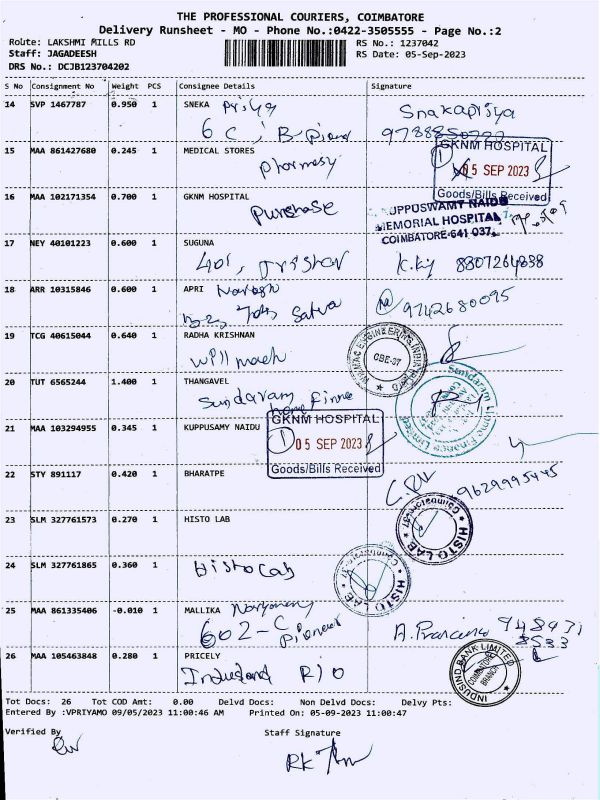 THE PROFESSIONAL COURIERS, COIMBATORE
Delivery Runsheet - MO - Phone No.:0422-3505555 - Page No.:2
Route: LAKSHMI MILLS RD RS No.: 1237042
Staff: JAGADEESH RS Date: 05-Sep-2023
DRS No.: DCJB123704202
S No Consignment No Weight PCS Consignee Details Signature
14 SVP 1467787 0.950 1 SNEKA Priya Snakapriya
6 C, B
15 MAA 861427680 0.245 1 MEDICAL STORES GKNM HOSPITAL
Pharmasy 1 05 SEP 2023
Goods/Bills Received
16 MAA 102171354 0.700 1 GKNM HOSPITAL
Purchase KUPPUSWAMY NAIDU
MEMORIAL HOSPITAL,
COIMBATORE-641 037.
17 NEY 40101223 0.600 1 SUGUNA
401, 8807264838
18 ARR 10315846 0.600 1 APRI Naresh
Satva 9742680095
19 TCG 40615044 0.640 1 RADHA KRISHNAN
CBE-37
20 TUT 6565244 1.400 1 THANGAVEL
Sundaram home Finne Sundaram Home Finance Limited
21 MAA 103294955 0.345 1 KUPPUSAMY NAIDU GKNM HOSPITAL
1 05 SEP 2023
Goods/Bills Received
22 STY 891117 0.420 1 BHARATPE
9629995445
23 SLM 327761573 0.270 1 HISTO LAB
HISTO LAB
24 SLM 327761865 0.360 1
Histo Lab HISTO LAB
25 MAA 861335406 -0.010 1 MALLIKA
602-C Pioneer
26 MAA 105463848 0.280 1 PRICELY
Indusland R/O INDUSIND BANK LIMITED
COIMBATORE
BRANCH
Tot Docs: 26 Tot COD Amt: 0.00 Delvd Docs: Non Delvd Docs: Delvy Pts:
Entered By :VPRIYAMO 09/05/2023 11:00:46 AM Printed On: 05-09-2023 11:00:47
Verified By Staff Signature